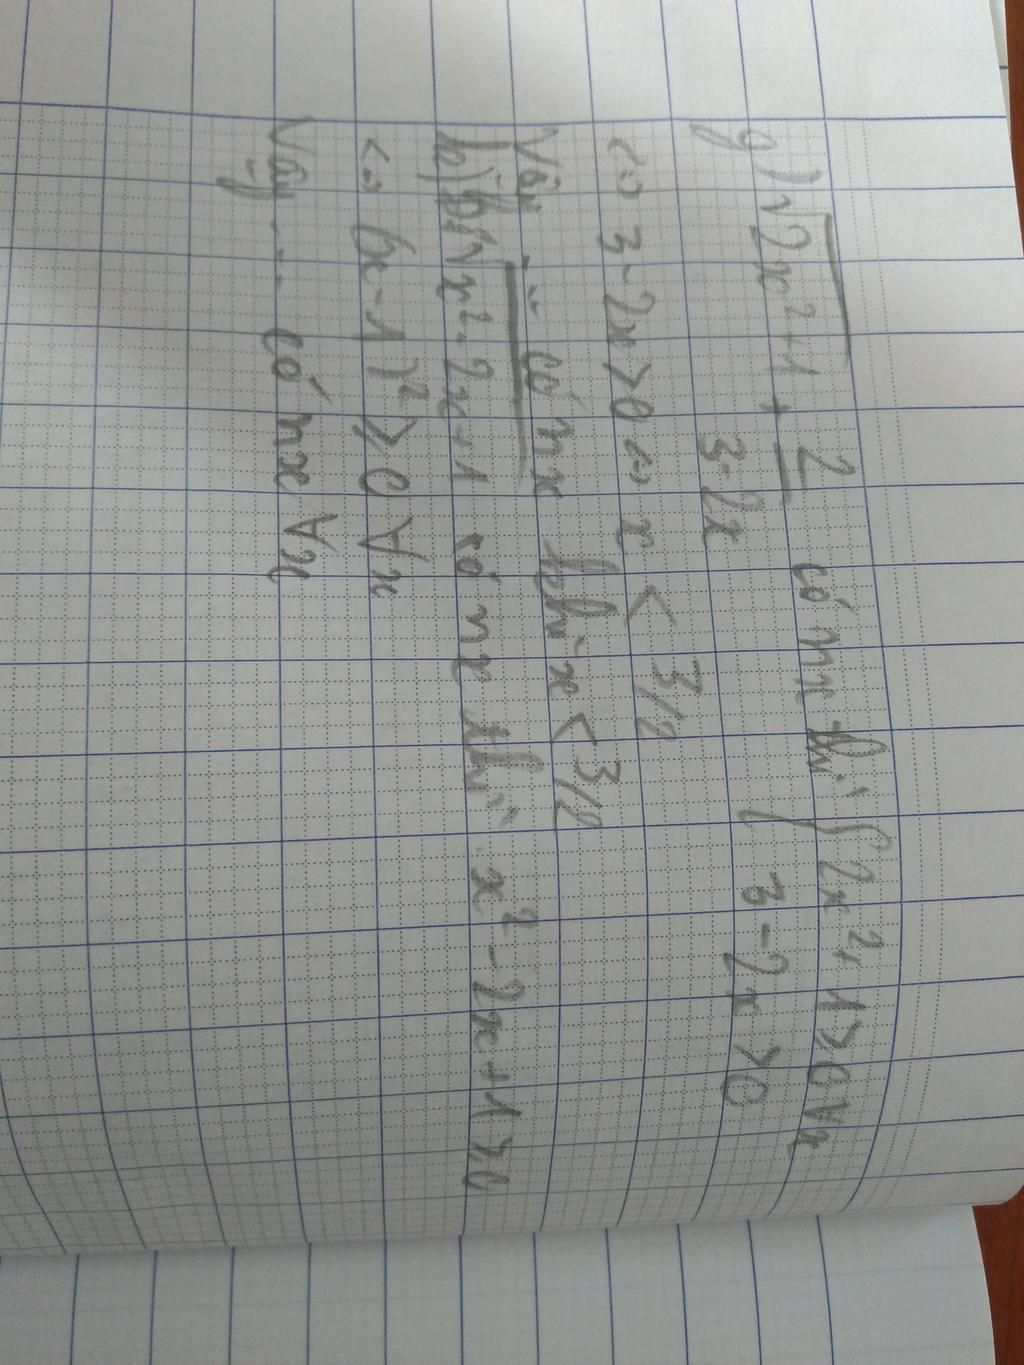 g) √2x²+1 + 2/3-2x có nx khi { 2x²+1>0 ∀x
3-2x>0
<=> 3-2x>0 <=> x < 3/2
Vậy ... có nx khi x < 3/2
h) √x²-2x+1 có nx khi x²-2x+1 ≥0
<=> (x-1)² ≥0 ∀x
Vậy ... có nx ∀x